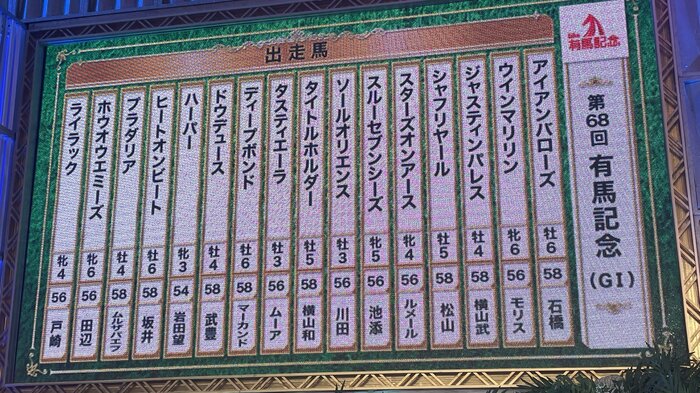 有馬記念
第68回 有馬記念 (GI)
出走馬
アイアンバローズ 牡6 58 石橋
ウインマリリン 牝6 56 モリス
ジャスティンパレス 牡4 58 横山武
シャフリヤール 牡5 58 松山
スターズオンアース 牝4 56 ルメール
スルーセブンシーズ 牝5 56 池添
ソールオリエンス 牡3 56 川田
タイトルホルダー 牡5 58 横山和
タスティエーラ 牡3 56 ムーア
ディープボンド 牡6 58 マーカンド
ドウデュース 牡4 58 武豊
ハーパー 牝3 54 岩田望
ヒートオンビート 牡6 58 坂井
プラダリア 牡4 58 ムルザバエフ
ホウオウエミーズ 牝6 56 田辺
ライラック 牝4 56 戸崎